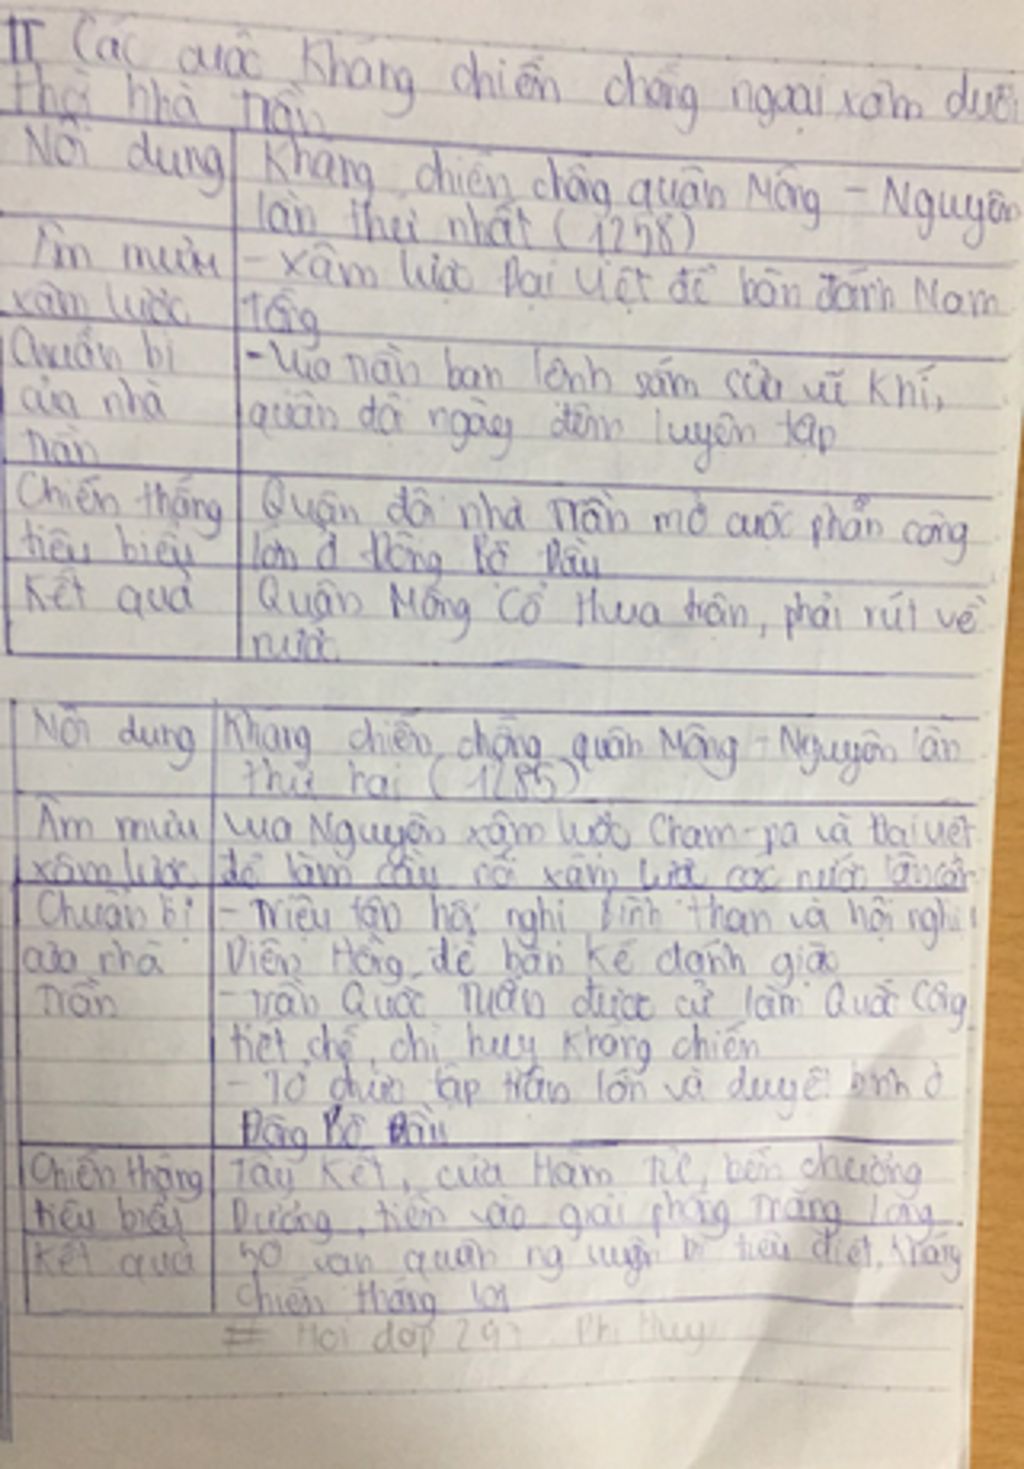 II Các cuộc kháng chiến chống ngoại xâm dưới
thời nhà Trần
Nội dung
Kháng chiến chống quân Mông - Nguyên
lần thứ nhất (1258)
Âm mưu
xâm lược
- xâm lược Đại Việt để bàn đánh Nam
Tống
Chuẩn bị
của nhà
Trần
- Vua Trần ban lệnh sắm sửa vũ khí,
quân đội ngày đêm luyện tập
Chiến thắng
tiêu biểu
Quân đội nhà Trần mở cuộc phản công
lớn ở Đông Bộ Đầu
Kết quả
Quân Mông Cổ thua trận, phải rút về
nước
Nội dung
Kháng chiến chống quân Mông - Nguyên lần
thứ hai (1285)
Âm mưu
xâm lược
Vua Nguyên xâm lược Cham-pa và Đại Việt
để làm cầu nối xâm lược các nước lân cận
Chuẩn bị
của nhà
Trần
- Triệu tập hội nghị Bình Than và hội nghị
Diên Hồng để bàn kế đánh giặc
- Trần Quốc Tuấn được cử làm Quốc Công
tiết chế, chỉ huy kháng chiến
- Tổ chức tập trận lớn và duyệt binh ở
Đông Bộ Đầu
Chiến thắng
tiêu biểu
Tây Kết, cửa Hàm Tử, bến chương
Dương, tiến vào giải phóng Thăng Long
Kết quả
50 vạn quân nguyên bị tiêu diệt. Kháng
chiến thắng lợi
# Hoi dap 247 Phi Huy